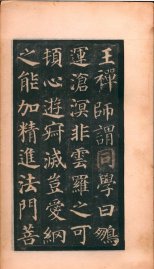 王禪師謂同學曰鵷
運滄溟非雲羅之可
頓心遊寂滅豈愛網
之能加精進法門菩